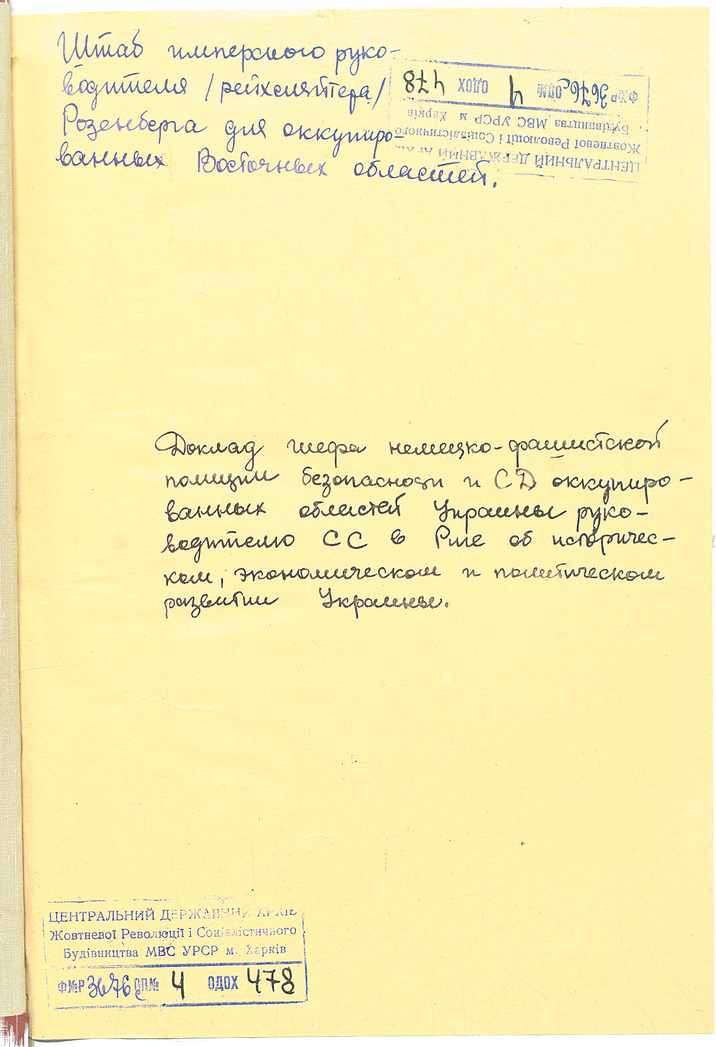 Штаб имперского руко-
водителя /рейхсляйтера/
Розенберга для оккупиро-
ванных Восточных областей.
Ф№Р 3676 ОП№ 4 ОДОХ 478
ЦЕНТРАЛЬНИЙ ДЕРЖАВНИЙ
Жовтневої Революції і Соціалістичного
Будівництва МВС УРСР м Харків
Доклад шефа немецко-фашистской
полиции безопасности и СД оккупиро-
ванных областей Украины руко-
водителю СС в Риге об историчес-
ком, экономическом и политическом
развитии Украины.
ЦЕНТРАЛЬНИЙ ДЕРЖАВНИЙ АРХІВ
Жовтневої Революції і Соціалістичного
Будівництва МВС УРСР м. Харків
Ф№Р 3676 ОП№ 4 ОДОХ 478